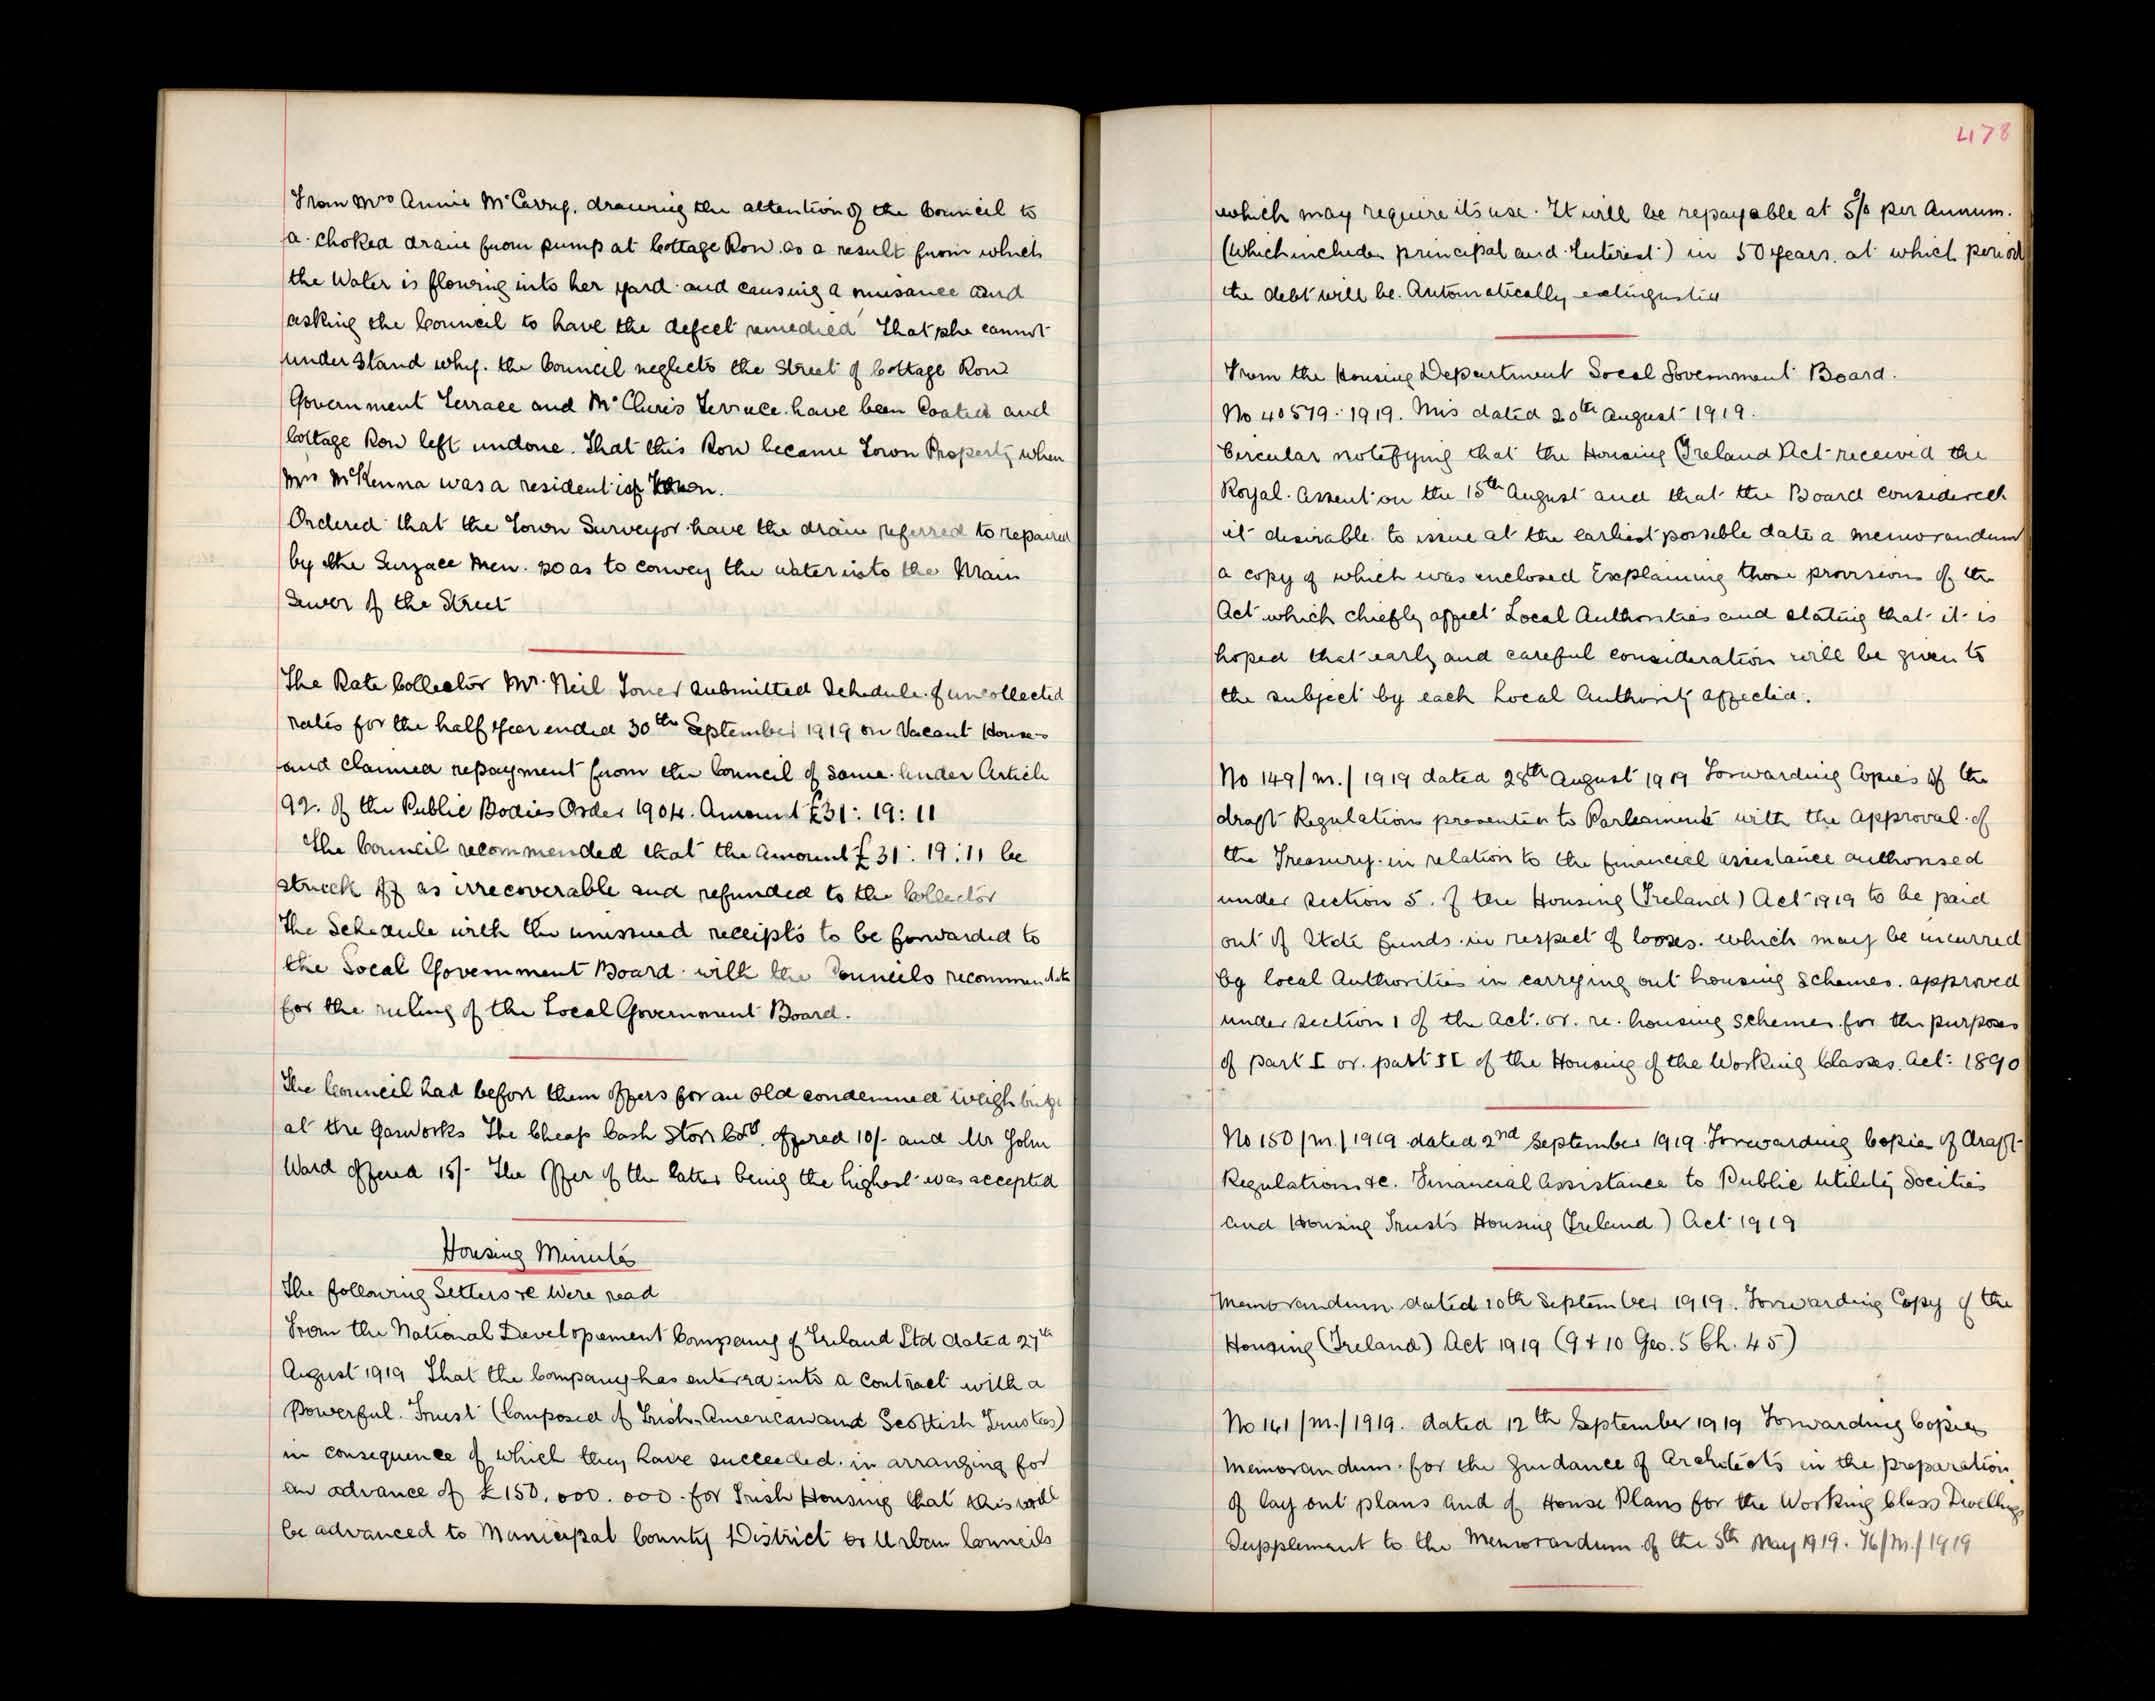 From Mrs Annie McCarry. drawing the attention of the Council to
a choked drain from pump at Cottage Row as a result from which
the Water is flowing into her yard and causing a nuisance and
asking the Council to have the defect remedied That she cannot
understand why. the Council neglects the Street of Cottage Row
Government Terrace and McClure's Terrace have been Coated and
Cottage Row left undone. That this Row became Town Property when
Mrs McKenna was a resident
Ordered that the Town Surveyor have the drain referred to repaired
by the Surface Men. so as to convey the water into the Main
Sewer of the Street
The Rate Collector Mr. Neil Toner submitted Schedule of uncollected
rates for the half year ended 30th September 1919 on Vacant Houses
and claimed repayment from the Council of same under Article
92. of the Public Bodies Order 1904. Amount £31: 19: 11
The Council recommended that the Amount £31: 19: 11 be
struck off as irrecoverable and refunded to the Collector
The Schedule with the unissued receipts to be forwarded to
the Local Government Board with the Councils
for the ruling of the Local Government Board.
The Council had before them offers for an old condemned weigh bridge
at the Gasworks The Cheap Cash Store Coy. offered 10/- and Mr John
Ward offered 15/- The Offer of the latter being the highest was accepted
Housing Minutes
The following Letters re Were read
From the National Developement Company of Ireland Ltd dated 27th
August 1919 That the Company has entered into a contract with a
Powerful Trust (Composed of Irish-American and Scottish Trustees)
in consequence of which they have succeeded in arranging for
an advance of £150,000,000 for Irish Housing that this will
be advanced to Municipal County District or Urban Councils
478
which may require its use. It will be repayable at 5% per Annum.
(Which includes principal and Interest) in 50 years. at which period
the debt will be Automatically
From the Housing Department Local Government Board.
No 40579. 1919. Mis dated 20th August 1919.
Circular notifying that the Housing (Ireland) Act received the
Royal Assent on the 15th August and that the Board considered
it desirable to issue at the earliest possible date a memorandum
a copy of which was enclosed Explaining those provisions of the
Act which chiefly affect Local Authorities and stating that it is
hoped that early and careful consideration will be given to
the subject by each Local Authority affected.
No 149/m./1919 dated 28th August 1919 Forwarding Copies of the
draft Regulations presented to Parliament with the approval of
the Treasury in relation to the financial assistance authorised
under section 5. of the Housing (Ireland) Act 1919 to be paid
out of State funds in respect of losses. which may be incurred
by local Authorities in carrying out housing schemes. approved
under section 1 of the Act. or. re. housing schemes for the purposes
of part I or. part II of the Housing of the Working Classes. Act. 1890
No 150/m./1919 dated 2nd September 1919 Forwarding Copies of draft
Regulations &c. Financial Assistance to Public Utility Socities
and Housing Trusts Housing (Ireland) Act 1919
Memorandum dated 10th September 1919. Forwarding Copy of the
Housing (Ireland) Act 1919 (9 & 10 Geo. 5 Ch. 45)
No 161/m./1919. dated 12th September 1919 Forwarding Copies
Memorandum for the guidance of Architects in the preparation
of lay out plans and of House Plans for the Working Class Dwellings
Supplement to the Memorandum of the 5th May 1919. 76/M./1919